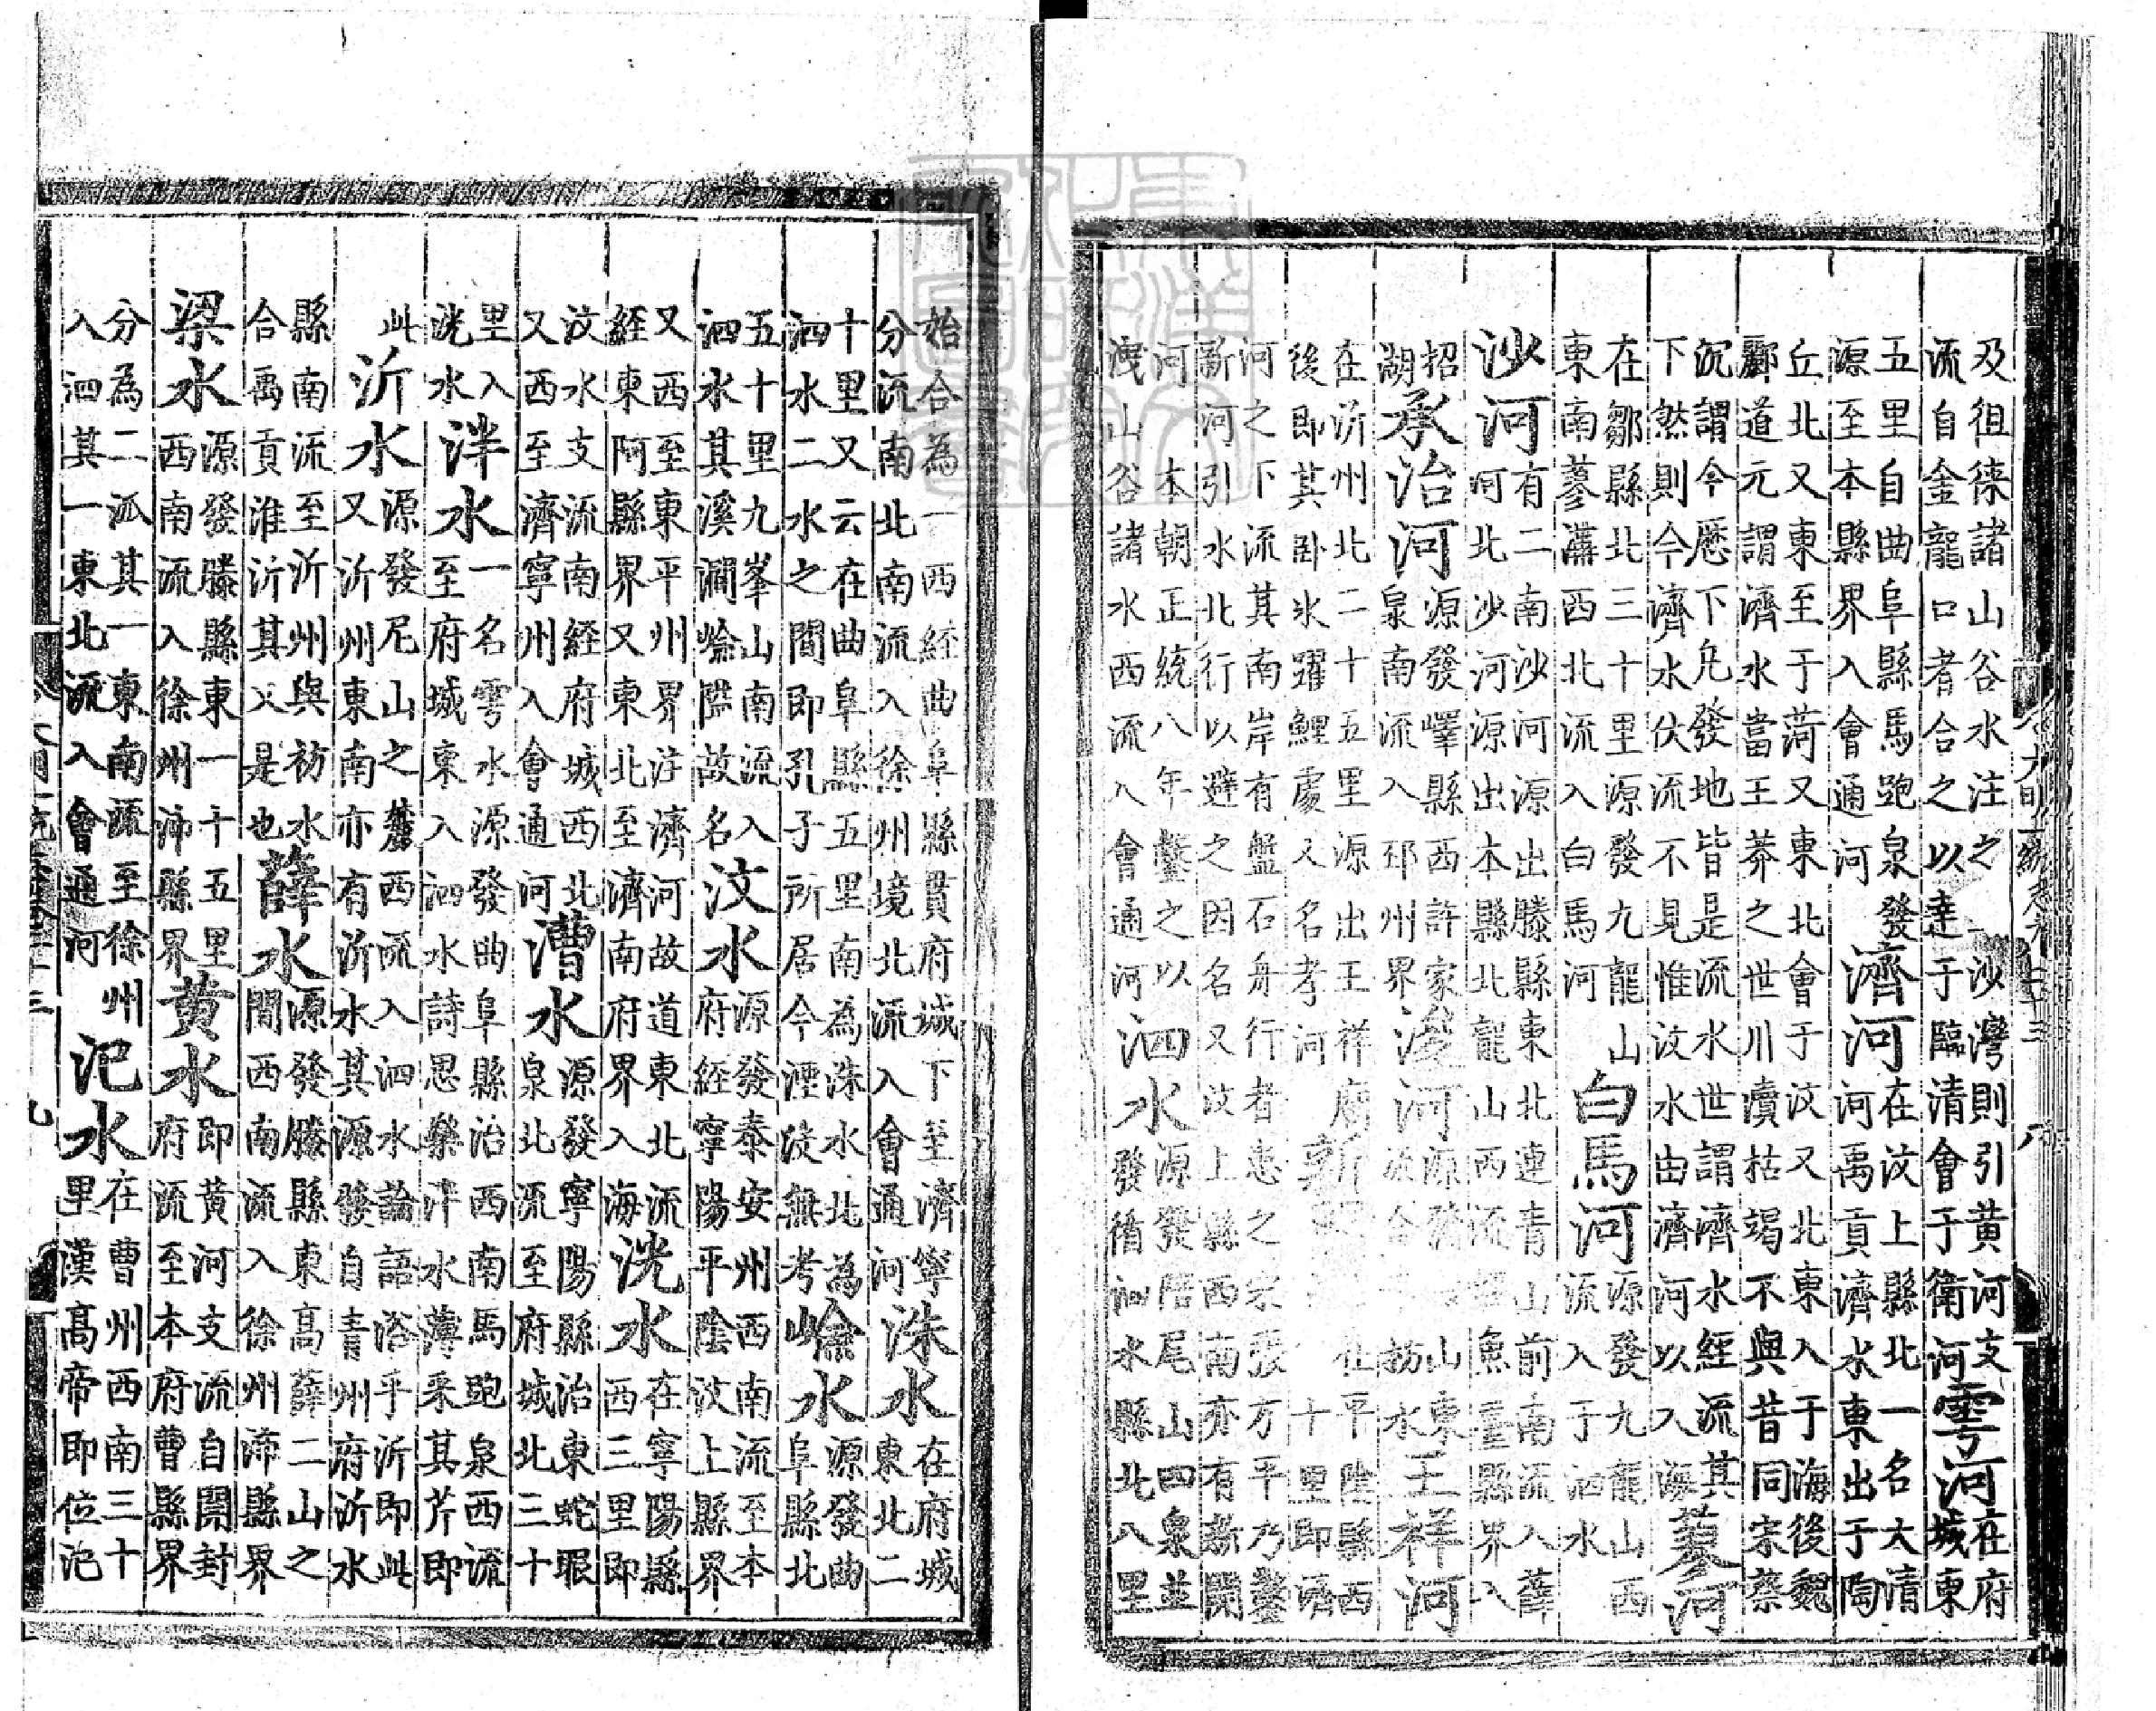 及徂徠諸山谷水注之一沙灣則引黄河支
流自金龍口者合之以達于臨清會于衛河
雩河
在府
城東
五里自曲阜縣馬跑泉發
源至本縣界入會通河
濟河
在汶上縣北一名大清
河禹貢濟水東出于陶
丘北又東至于菏又東北會于汶又北東入于海後魏
酈道元謂濟水當王莽之世川瀆枯竭不與昔同宋蔡
沉謂今歷下凢發地皆是流水世謂濟水經流其
下然則今濟水伏流不見惟汶水由濟河以入海
蓼河
在鄒縣北三十里源發九龍山
東南蓼溝西北流入白馬河
白馬河
源發九龍山西
流入于泗水
沙河
有二南沙河源出滕縣東北連青山前南流入薛
河北沙河源出本縣北龍山西流經魚臺縣界入
招
湖
承治河
源發嶧縣西許家
泉南流入邳州界
浚河
源發山東
流合枋水
王祥河
在沂州北二十五里源出王祥廟
後即其卧氷躍鯉處又名孝河
新
在平陰縣西
十里即濟
河之下流其南岸有盤石舟行者患之宋張方平乃鑿
新河引水北行以避之因名又汶上縣西南亦有新開
河 本朝正統八年鑿之以
洩山谷諸水西流入會通河
泗水
源發陪尾山四泉並
發循泗水縣北八里
始合為一西經曲阜縣貫府城下至濟寧
分流南北南流入徐州境北流入會通河
洙水
在府城
東北二
十里又云在曲阜縣五里南為洙水北為
泗水二水之間即孔子所居今湮没無考
嶮水
源發曲
阜縣北
五十里九峯山南流入
泗水其溪澗嶮隘故名
汶水
源發泰安州西南流至本
府經寧陽平陰汶上縣界
又西至東平州界注濟河故道東北流
經東阿縣界又東北至濟南府界入海
洸水
在寧陽縣
西三里即
汶水支流南經府城西北
又西至濟寧州入會通河
漕水
源發寧陽縣治東蛇眼
泉北流至府城北三十
里入
洸水
泮水
一名雩水源發曲阜縣治西南馬跑泉西流
至府城東入泗水詩思樂泮水薄采其芹即
此
沂水
源發尼山之麓西流入泗水論語浴乎沂即此
又沂州東南亦有沂水其源發自青州府沂水
縣南流至沂州與祊水
合禹貢淮沂其乂是也
薛水
源發滕縣東高薛二山之
間西南流入徐州沛縣界
梁水
源發滕縣東一十五里
西南流入徐州沛縣界
黄水
即黄河支流自開封
府流至本府曹縣界
分為二派其一東南流至徐州
入泗其一東北流入會通河
汜水
在曹州西南三十
里漢高帝即位汜